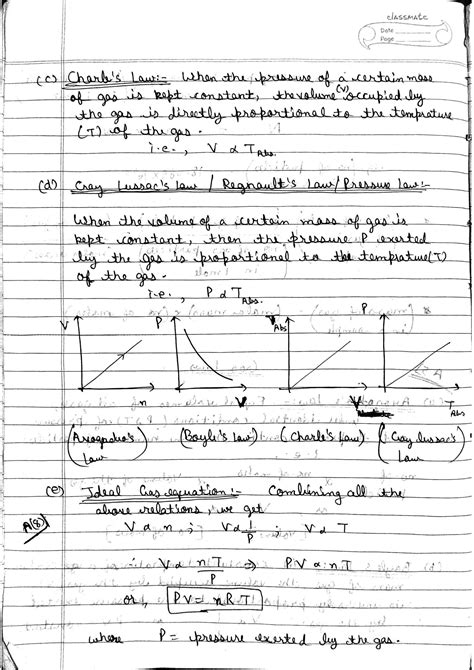 classmate
Date
Page
(c) Charle's Law:- When the pressure of a certain mass
of gas is kept constant, the volume (V) occupied by
the gas is directly proportional to the temprature
(T) of the gas.
i.e., V α T Abs.
(d) Gay Lussac's law / Regnault's Law/Pressure law:-
When the volume of a certain mass of gas is
kept constant, then the pressure P exerted
by the gas is proportional to the temprature(T)
of the gas.
i.e., P α T Abs.
V P V Abs P
n V T Abs
(Avogadro's Law) (Boyle's Law) (Charle's Law) (Gay lussac's Law)
(e) Ideal Gas equation:- Combining all the
above relations, we get
V α n ; V α 1/P ; V α T
V α nT/P ⇒ PV α nT
or, PV = nRT
where P = pressure exerted by the gas.